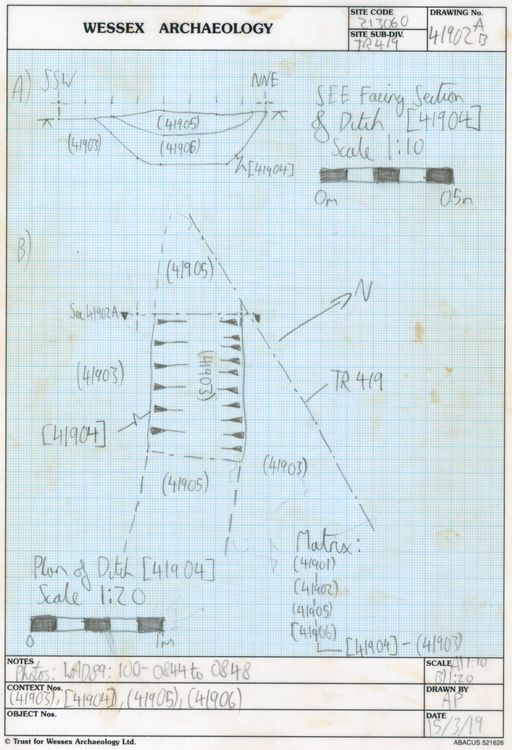 WESSEX ARCHAEOLOGY
SITE CODE
213060
SITE SUB-DIV.
TR419
DRAWING No.
41902 A
B
A)
SSW
NNE
(41905)
(41903)
(41906)
[41904]
SEE Facing Section
of Ditch [41904]
Scale 1:10
0m
0.5m
B)
(41905)
N
Sec 41902A
(41903)
(41903)
TR 419
[41904]
(41905)
(41903)
Plan of Ditch [41904]
Scale 1:20
0
1m
Matrix:
(41901)
(41902)
(41905)
[41906)
[41904] - (41903)
NOTES
Photos: WAD89: 100-0844 to 0848
CONTEXT Nos.
(41903), [41904], (41905), (41906)
OBJECT No.
SCALE A) 1:10
B) 1:20
DRAWN BY
AP
DATE
15/3/19
© Trust for Wessex Archaeology Ltd.
ABACUS 521626